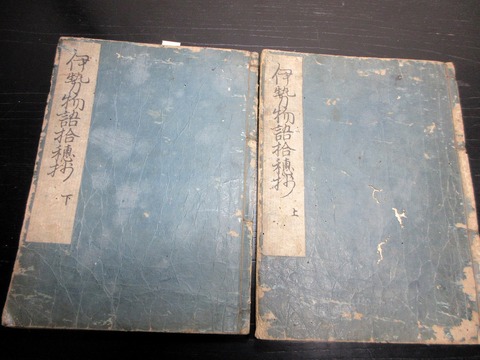 伊勢物語拾穂抄
下
伊勢物語拾穂抄
上